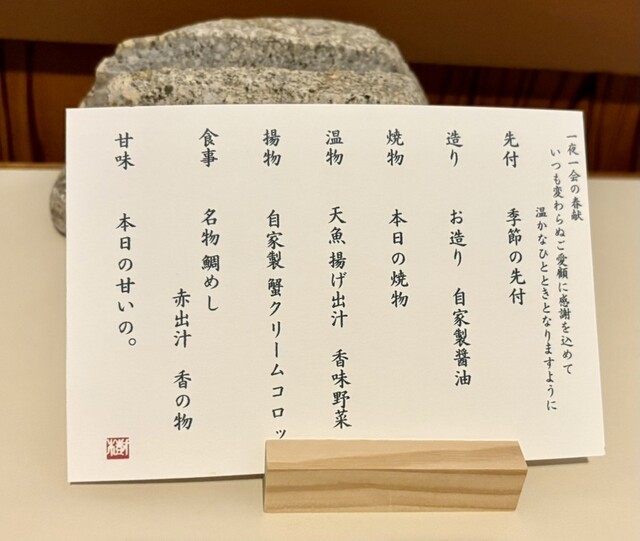 一夜一会の春献
いつも変わらぬご愛顧に感謝を込めて
温かなひとときとなりますように
先付 季節の先付
造り お造り 自家製醤油
焼物 本日の焼物
温物 天魚揚げ出汁 香味野菜
揚物 自家製 蟹クリームコロッ
食事 名物 鯛めし
赤出汁 香の物
甘味 本日の甘いの。